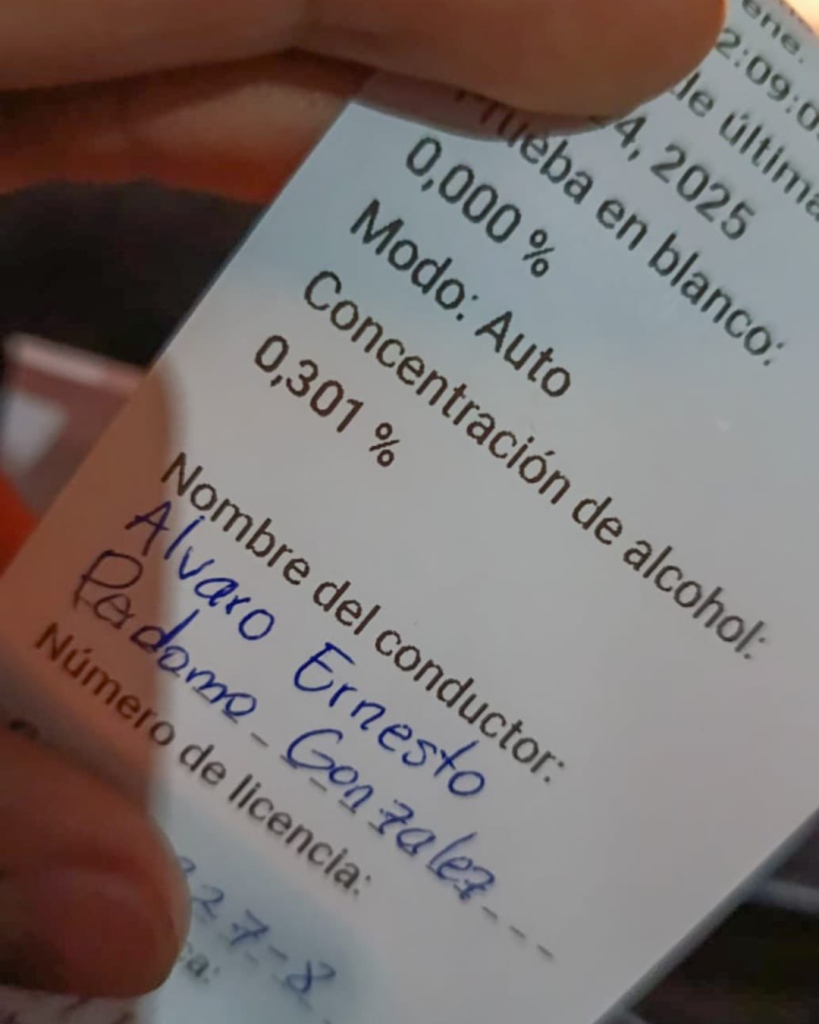 ene.
2:09:0
de última
24, 2025
Prueba en blanco:
0,000 %
Modo: Auto
Concentración de alcohol:
0,301 %
Nombre del conductor:
Alvaro Ernesto
Perdomo - Gonzalez - - -
Número de licencia:
27-8